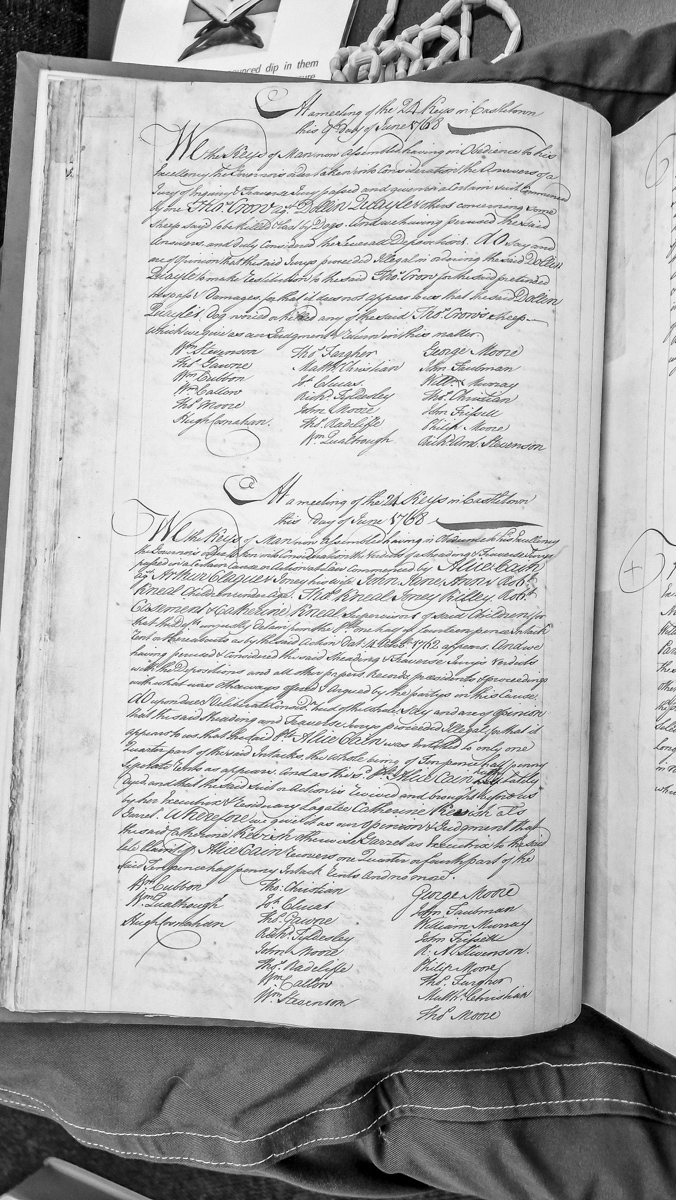 nounced dip in them
At a meeting of the 24 Keys in Castletown
this 9th day of June 1768
We the Keys of Mann now Assembled having in Obedience to his
Excellency the Governor's order taken into Consideration the Answers of a
Jury of Inquiry & Traverse Jury passed and given in a Certain suit Commenced
by one Tho: Crow agt. Dollin Quayle & others concerning some
sheep said to be killed by Dogs. And we having perused the said
Answers, and duly Considered the several Depositions. Do say and
are of Opinion that the said Jurys proceeded Illegal in ordering the said Dollin
Quayle to make restitution to the said Tho: Crow for the said pretended
trespass & Damages, for that it does not appear to us that the said Dollin
Quayle's Dog worried or killed any of the said Tho: Crow's sheep
which we give as our Judgment & return in this matter
Wm. Stevenson Tho: Fargher George Moore
Tho: Gawne Matth: Christian John Taubman
Wm. Cubbon Jo: Clucas Willm. Murray
Wm. Callow Richd. Tyldesley Tho: Christian
Tho: Moore John Moore John Frissell
Hugh Cosnahan. Tho: Radcliffe Philip Moore
Wm. Qualtrough Richd. Amb. Stevenson
At a meeting of the 24 Keys in Castletown
this day of June 1768
We the Keys of Mann now Assembled having in Obedience to his Excellency
the Governor's order taken into Consideration the Verdicts of a Sheading & Traverse Jurys
passed in a Certain Cause or Action at Law Commenced by Alice Cain
agt. Arthur Clague & Joney his wife, John, Jane, Ann & Robt.
Kneal Children under Age. Tho: Kneal Joney Killey, Robt.
Casement & Catherine Kneal Supervisors of said Children for
that the Defts. unjustly detain from the Plt. one half of fourteen pence Intack
Rent or thereabouts as by the said Action dat. 14 1762 appears. And we
having perused & Considered the said Sheading & Traverse Jury's Verdicts
with the Depositions and all other papers, Records, presidents & proceedings
with what was otherways offered & Argued by the partys in this Cause,
Do upon due & Deliberate Consid. had of the whole, say and are of Opinion
that the said Sheading and Traverse Jurys proceeded Illegal, for that it
appears to us that the said Plt. Alice Cain was Entitled to only one
Quarter part of the said Intacks, the whole being of Ten pence half penny
Rents as appears. And as the sd. Plt. Alice Cain lately
Dyed and that the said suit or Action is Revived and brought before us
by her Executrix & Legatee Catherine Kewish als
Garret. Wherefore we give it as our Opinion & Judgment that
the said Catherine Kewish otherwise Garret as Executrix to the said
late Claimt. Alice Cain recovers one Quarter or fourth part of the
said Ten pence half penny Intack Rents and no more.
Wm. Cubbon Tho: Christian George Moore
Wm. Qualtrough Jo: Clucas John Taubman
Hugh Cosnahan Tho: Gawne William Murray
Richd. Tyldesley John Frissell
John Moore R. A. Stevenson.
Tho: Radcliffe Philip Moore
Wm. Callow Tho: Fargher
Wm. Stevenson Matth: Christian
Tho: Moore